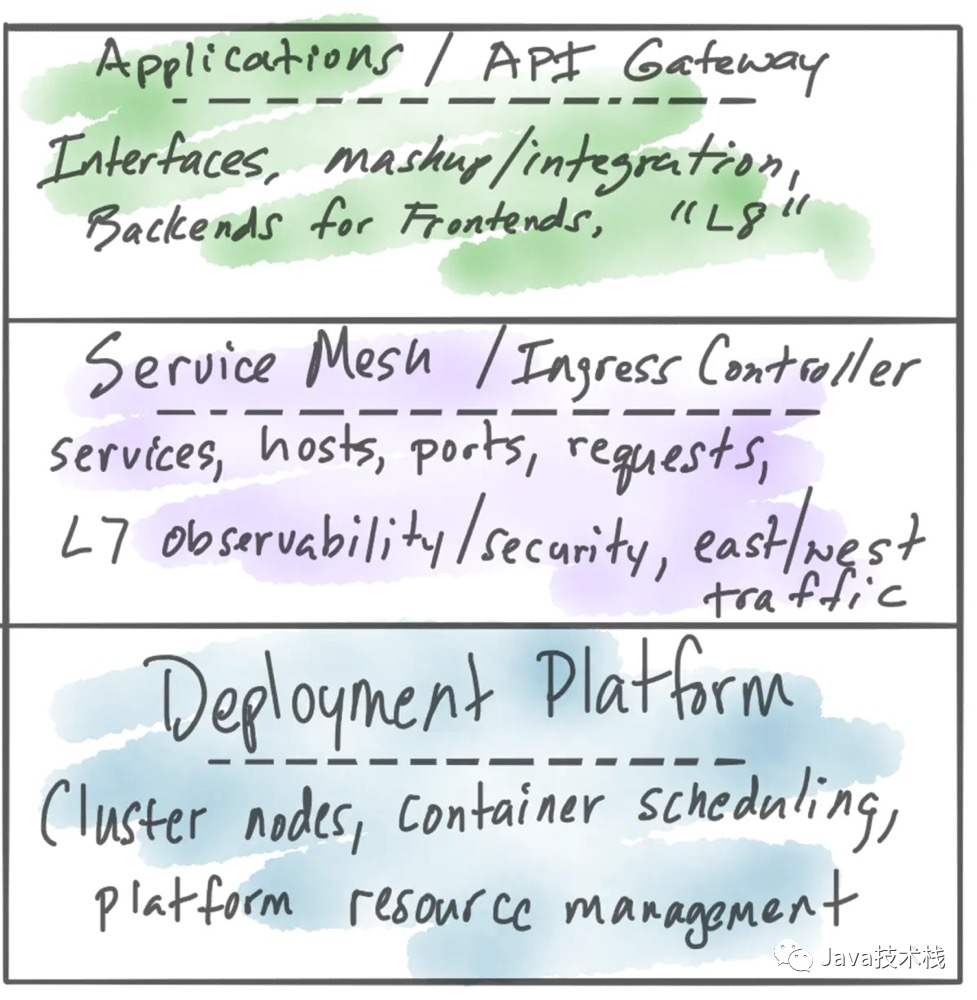 Applications / API Gateway
Interfaces, mashup/integration,
Backends for Frontends, "L8"
Service Mesh / Ingress Controller
services, hosts, ports, requests,
L7 observability/security, east/west
traffic
Deployment Platform
Cluster nodes, container scheduling,
platform resource management
Java技术栈